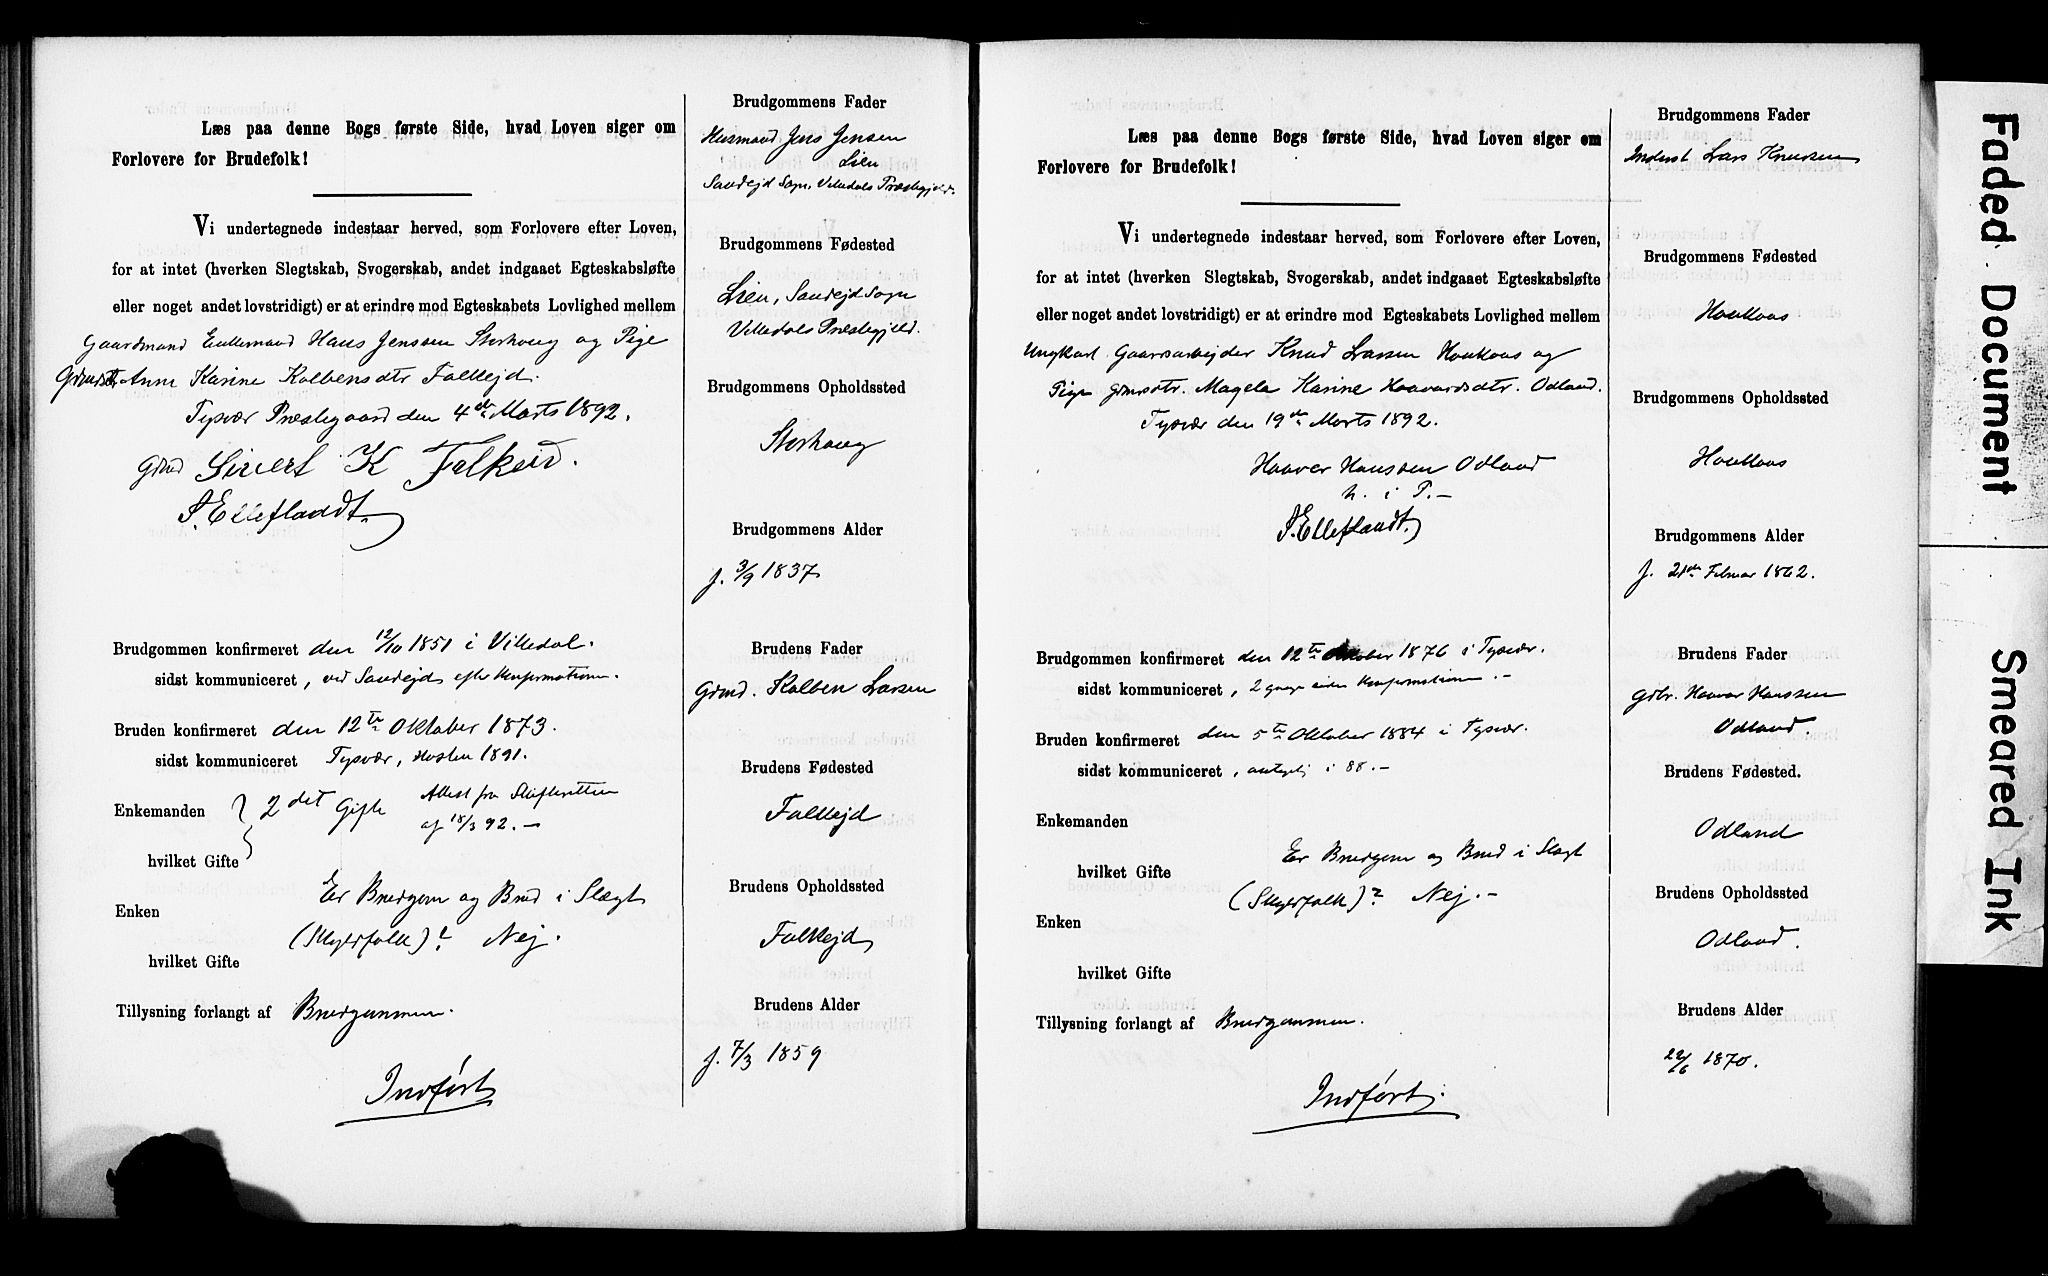 Læs paa denne Bogs første Side, hvad Loven siger om
Forlovere for Brudefolk!
Vi undertegnede indestaar herved, som Forlovere efter Loven,
for at intet (hverken Slegtskab, Svogerskab, andet indgaaet Egteskabsløfte
eller noget andet lovstridigt) er at erindre mod Egteskabets Lovlighed mellem
Gaardmand Enkemand Hans Jenssen Storhaug og Pige
Gmdsdtr Anne Karine Kolbensdtr Falkejd.
Tysvær Præstegaard den 4de Marts 1892.
Gmd Sivert K Falkeid.
S. Elleflaadt.
Brudgommen konfirmeret den 12/10 1851 i Vikedal.
sidst kommuniceret, ved Sandejd efter Konfirmationen.
Bruden konfirmeret den 12te Oktober 1873.
sidst kommuniceret Tysvær, Høsten 1891.
Enkemanden } 2det Gifte Attest fra Skifteretten
af 18/3 92. —
hvilket Gifte
Er Brudgom og Brud i Slægt
Enken
(Skyldfolk)? Nej.
hvilket Gifte
Tillysning forlangt af Brudgommen.
Indført
Brudgommens Fader
Husmand Jens Jensen
Lien
Sandejd Sogn, Vikedals Præstegjeld.
Brudgommens Fødested
Lien, Sandejd Sogn
Vikedals Præstegjeld.
Brudgommens Opholdssted
Storhaug
Brudgommens Alder
f. 3/9 1837
Brudens Fader
Gmd. Kolben Larsen
Brudens Fødested
Falkejd
Brudens Opholdssted
Falkejd
Brudens Alder
f. 7/3 1859
Læs paa denne Bogs første Side, hvad Loven siger om
Forlovere for Brudefolk!
Vi undertegnede indestaar herved, som Forlovere efter Loven,
for at intet (hverken Slegtskab, Svogerskab, andet indgaaet Egteskabsløfte
eller noget andet lovstridigt) er at erindre mod Egteskabets Lovlighed mellem
Ungkarl Gaardarbejder Knud Larsen Houkaas og
Pige Gmdsdtr. Magela Karine Haavardsdtr. Odland.
Tysvær den 19de Marts 1892.
Haaver Hanssen Odland
h. i P. —
S. Elleflaadt.
Brudgommen konfirmeret den 12te Oktober 1876 i Tysvær.
sidst kommuniceret, 2 gange siden Konfirmationen. —
Bruden konfirmeret den 5te Oktober 1884 i Tysvær.
sidst kommuniceret, antagelig i 88. —
Enkemanden
Er Brudgom og Brud i Slægt
hvilket Gifte
(Skyldfolk)? Nej. —
Enken
hvilket Gifte
Tillysning forlangt af Brudgommen.
Indført.
Brudgommens Fader
Inderst Lars Knudsen
Brudgommens Fødested
Houkaas
Brudgommens Opholdssted
Houkaas
Brudgommens Alder
f. 21de Februar 1862.
Brudens Fader
Gdbr. Haavar Hanssen
Odland.
Brudens Fødested.
Odland
Brudens Opholdssted
Odland.
Brudens Alder
22/6 1870.
Faded Document
Smeared Ink